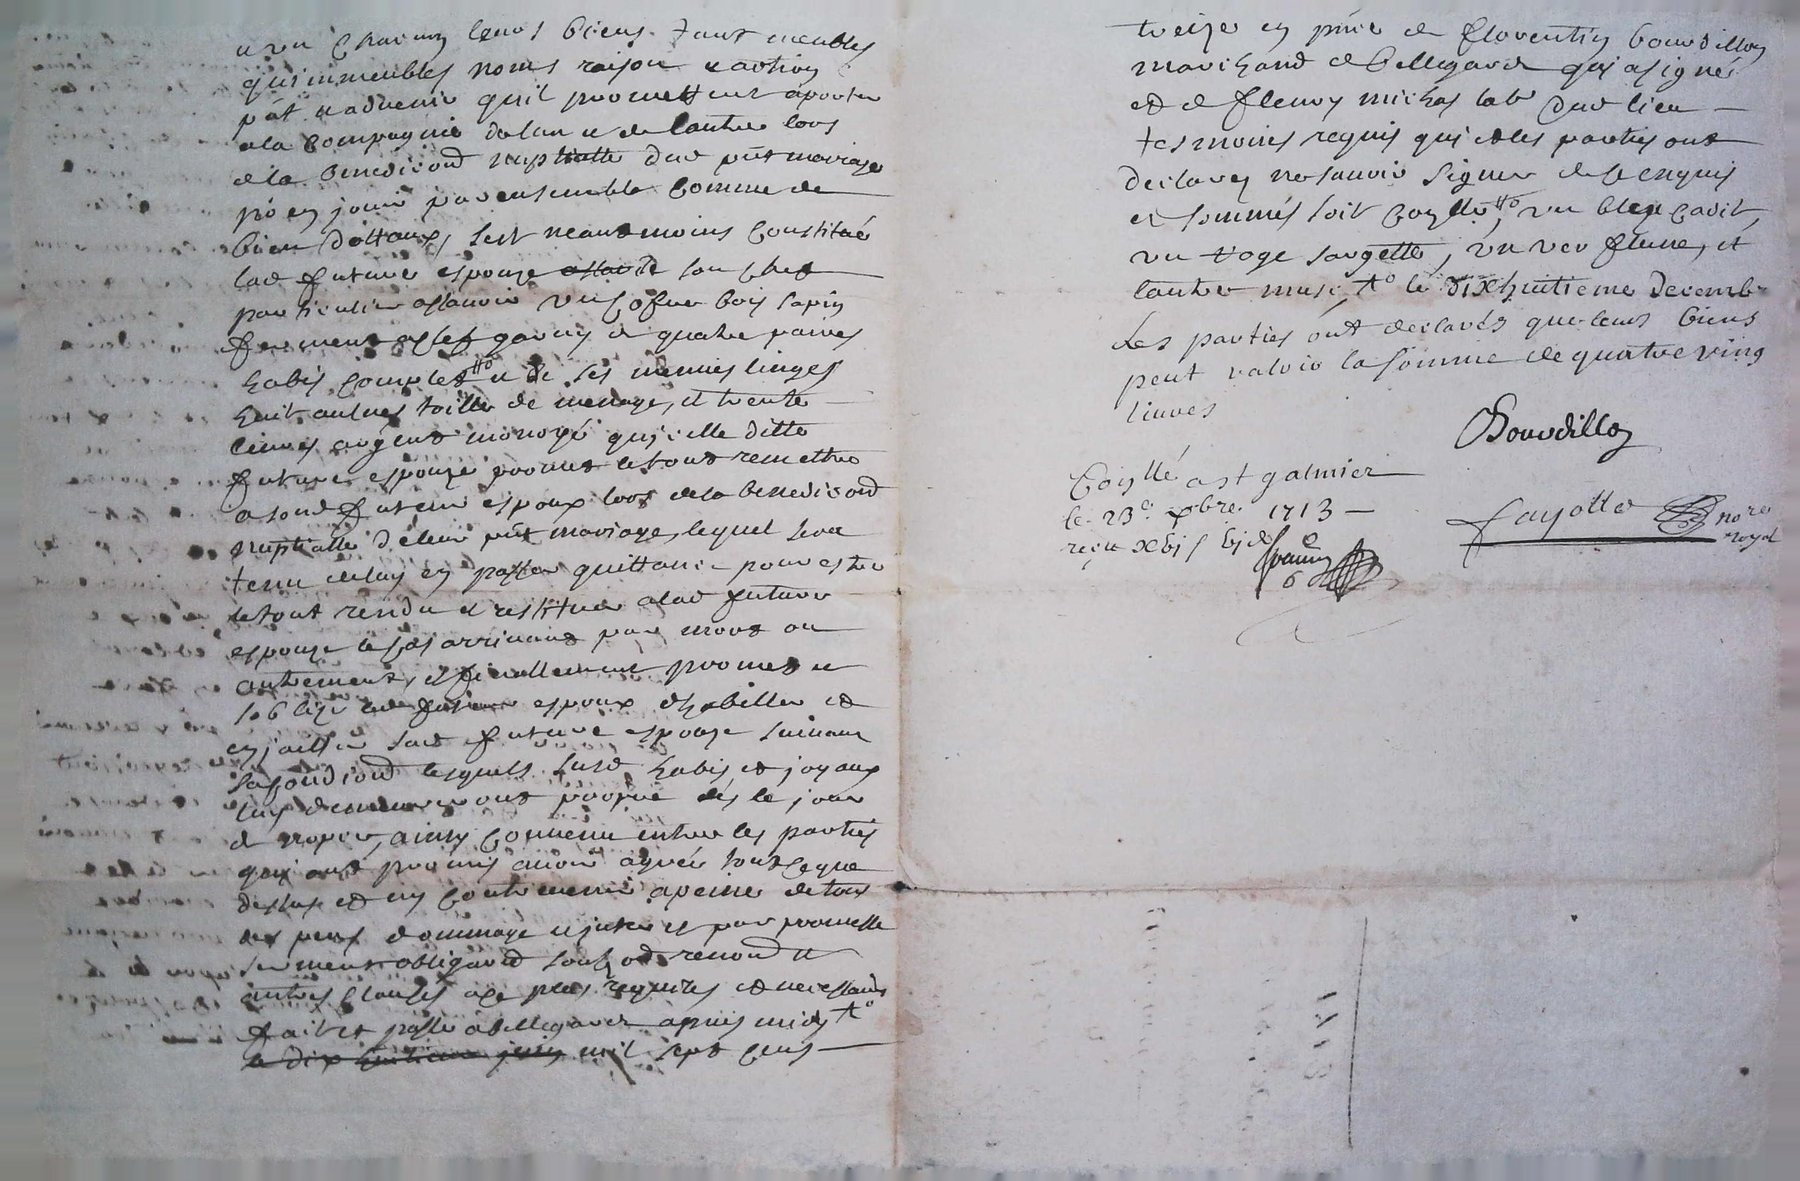 avec chacun leurs biens tant meubles
qu'immeubles noms raison & action
pñt & aduenir quil promettent aporter
a la Compagnie de lun & de lautre lors
de la benediond nuptialle dud pñt mariage
po en jouir par ensemble Comme de
bien dottaux, sest neantmoins Constitué
lad future espouze assavoir de son chef
particulier assauoir un cofre bois sapin
fermant a clef garny de quatre paires
habis Complet #o & de ses menues linges
huit aulnes toille de menage, et trente
liures argent monoyé qu'icelle ditte
future espouze promet le tout remettre
a sond futeur espoux lors de la benediond
nuptialle de leur pñt mariage, lequel sera
tenu de luy en passer quittance pour estre
le tout rendu & restitué a lad future
espouze le cas arriuant par mort ou
autrement, et finallement promet &
soblige led futeur espoux dhabiller et
enjoailler sad future espouze suiuant
sa condiond lesquels susd habis et joyaux
luy demeureront propre dés le jour
de noper, ainsy Conuenu entre les parties
qui ont promis auoir agréé tout ce que
dessus et ny Contreuenir a peine de tous
des pens dommage & jnterest par promesse
serment obligaond soubzod renond &
autres clauses a ce plus requises et necessaires
fait et passé a bellegarde apres midy #o
le dix huitieme juin mil sept cens
treize en pñce de florentin bourdillon
marchand de bellegarde qui a signé
et de fleury michas lab dud lieu
tesmoins requis qui et les parties ont
declarez ne sauoir signer de ce enquis
et sommés soit Coyllé #o un bleu cadit,
un roge sargette, un ver fleure, et
lautre musc, #o le dixhuitieme decemb
Les parties ont declarés que leurs biens
peut valoir la somme de quatre ving
liures
Bourdillon
Coyllé a st galmier
le 23e xbre 1713
reçu
fayolle no re
royal